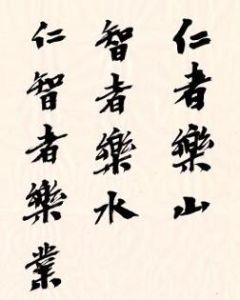 仁者樂山
智者樂水
仁智者樂業